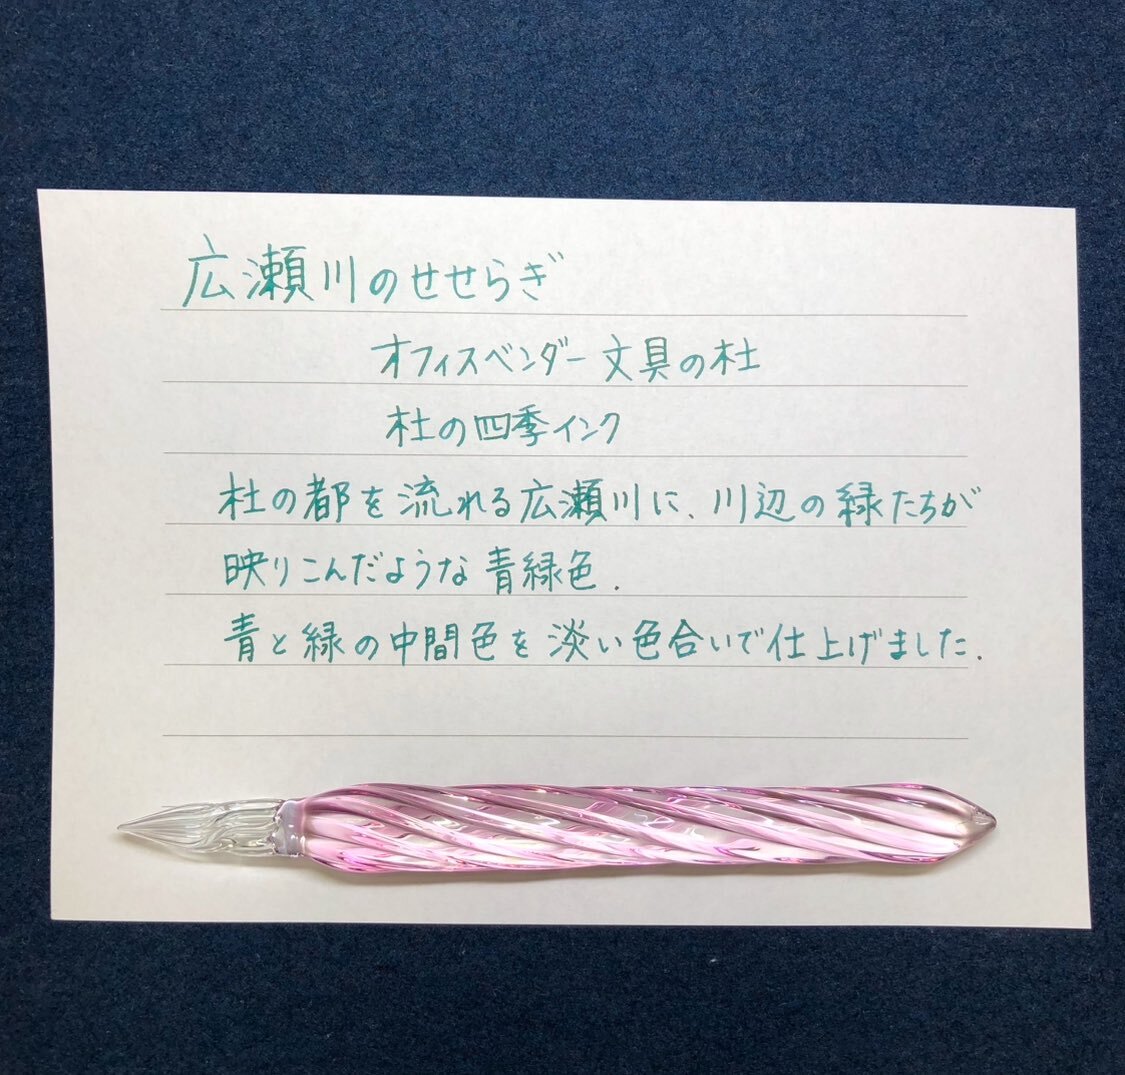 広瀬川のせせらぎ
オフィスベンダー文具の杜
杜の四季インク
杜の都を流れる広瀬川に、川辺の緑たちが
映りこんだような青緑色.
青と緑の中間色を淡い色合いで仕上げました.